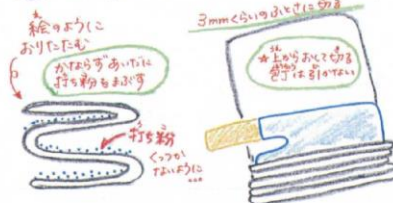 絵のように
おりたたむ
かならずあいだに
打ち粉をまぶす
打ち粉
くっつか
ないように
…
3mmくらいのふとさに切る
★上からおして切る
包丁は引かない